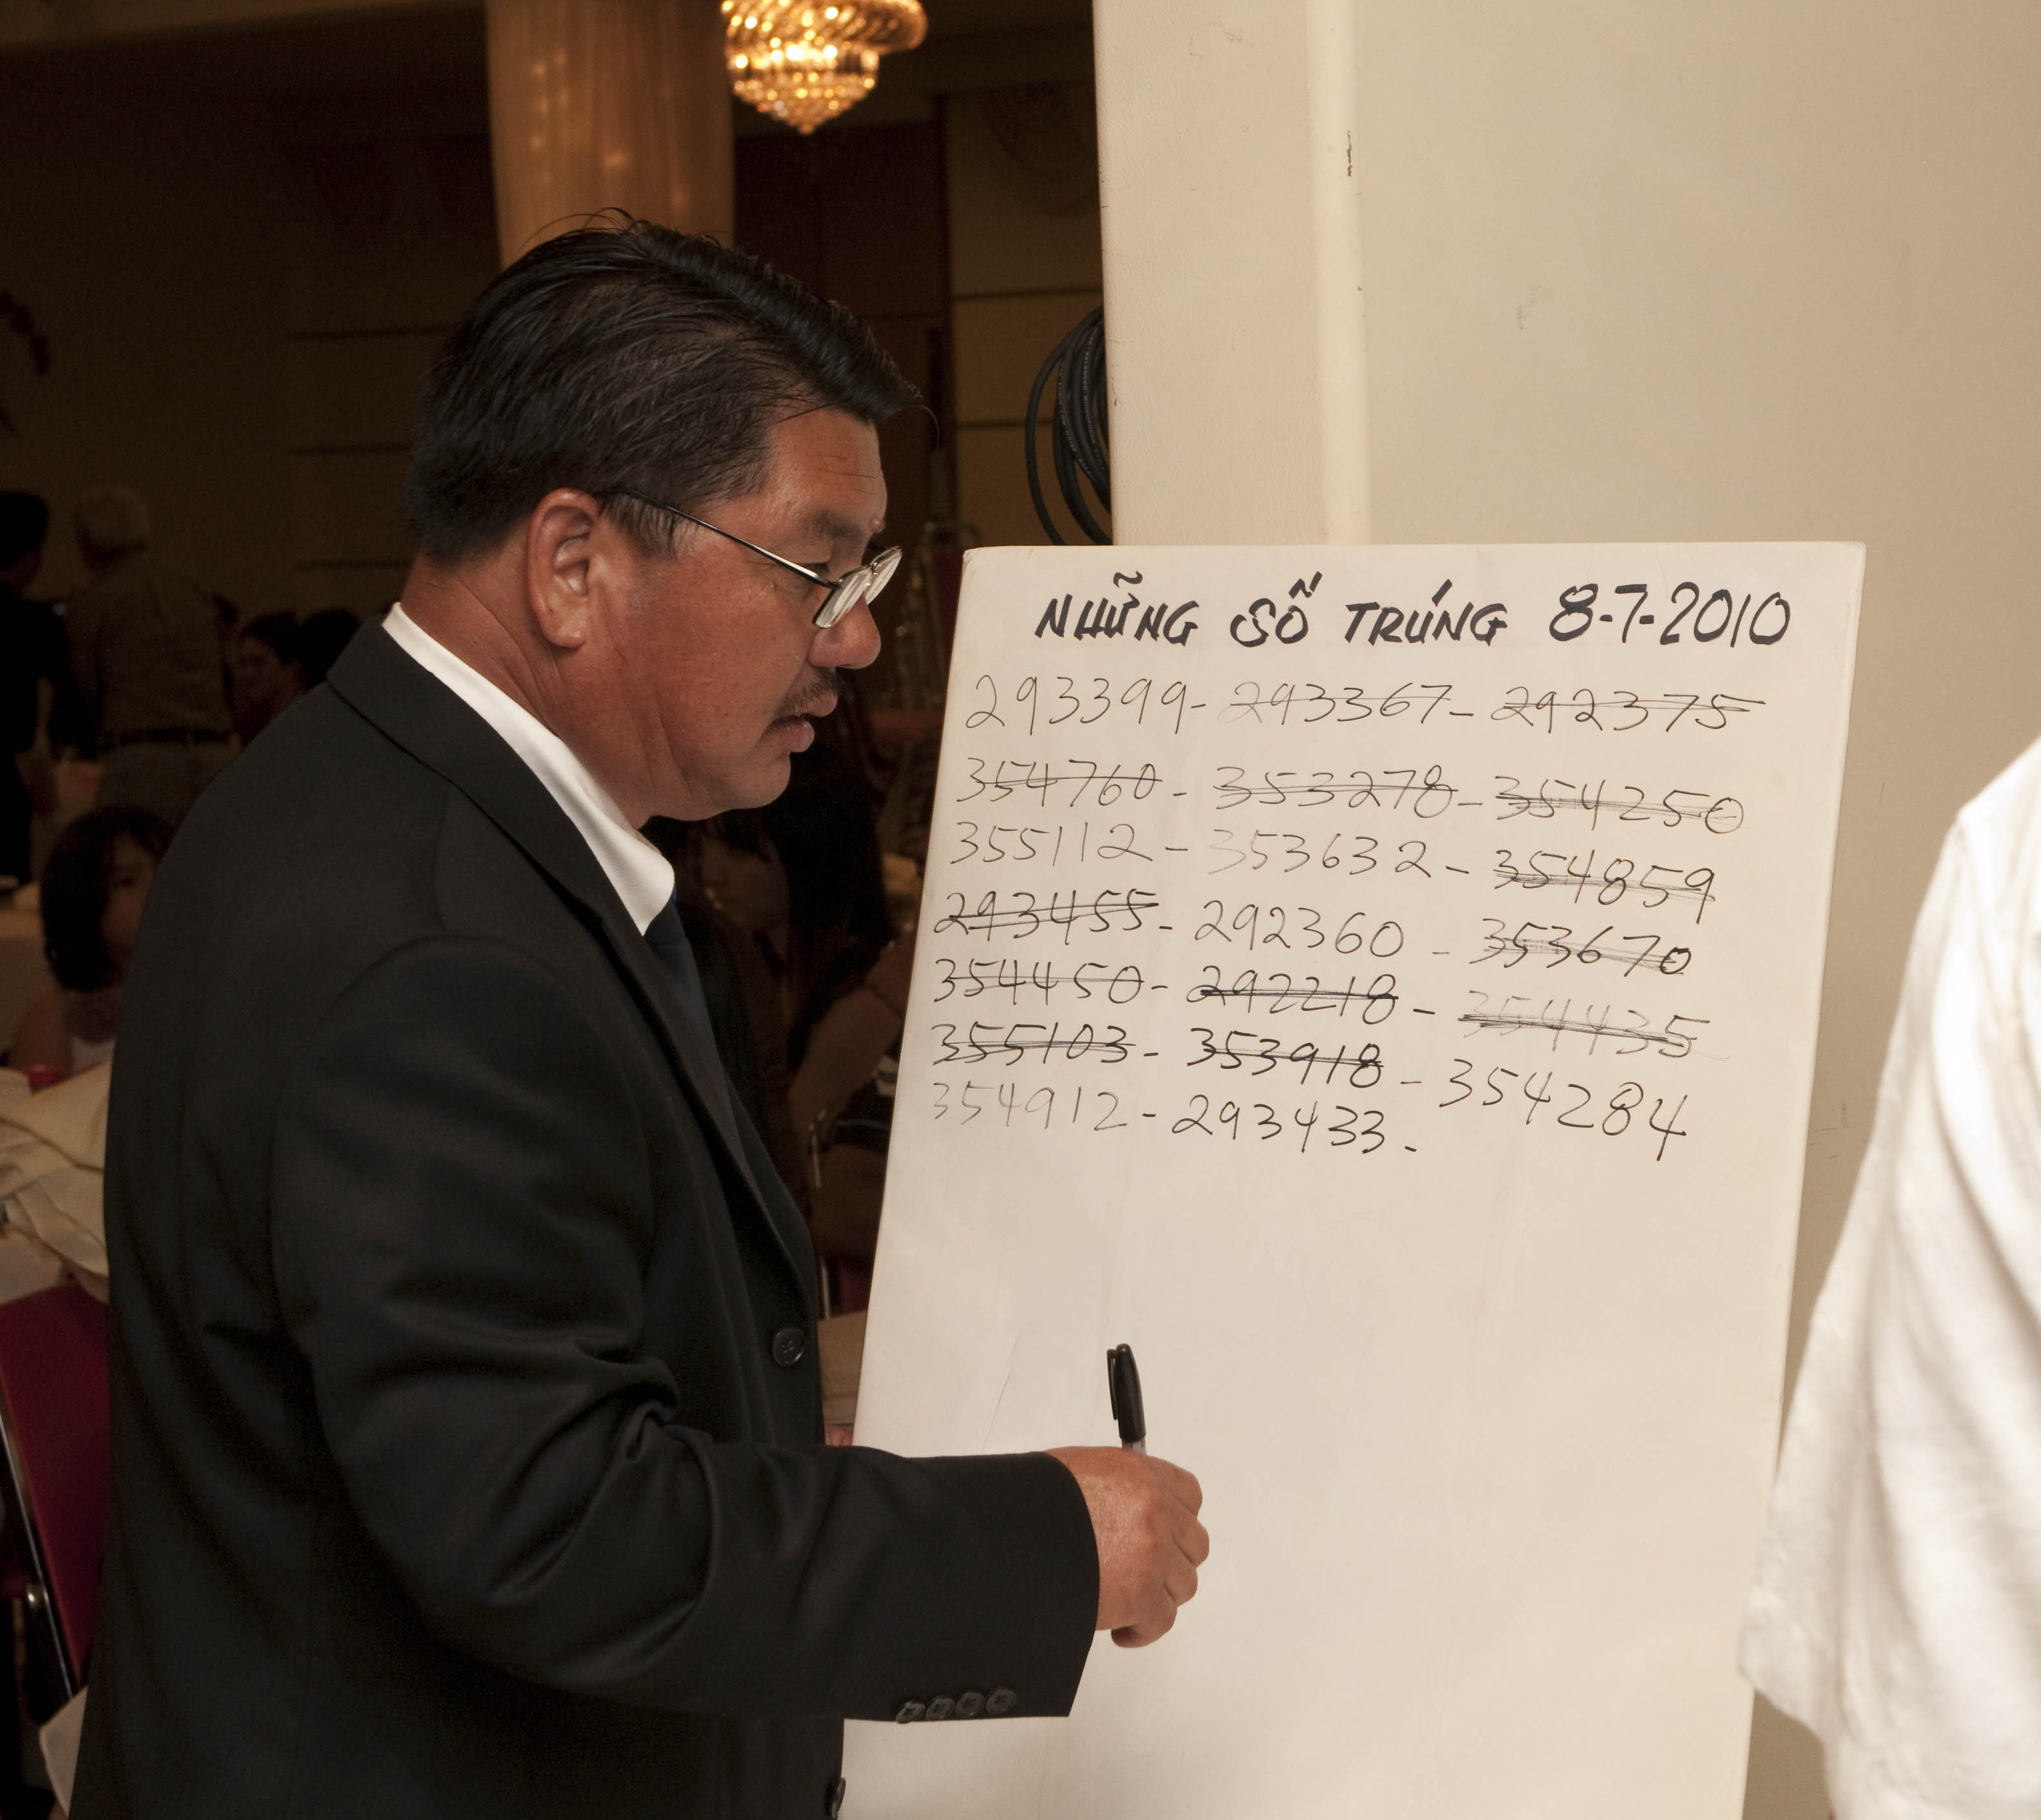 NHỮNG SỐ TRÚNG 8-7-2010
293399 - 293367 - 292375
354760 - 353278 - 354250
355112 - 353632 - 354859
293455 - 292360 - 353670
354450 - 292218 - 354435
355103 - 353918 - 354284
354912 - 293433 -